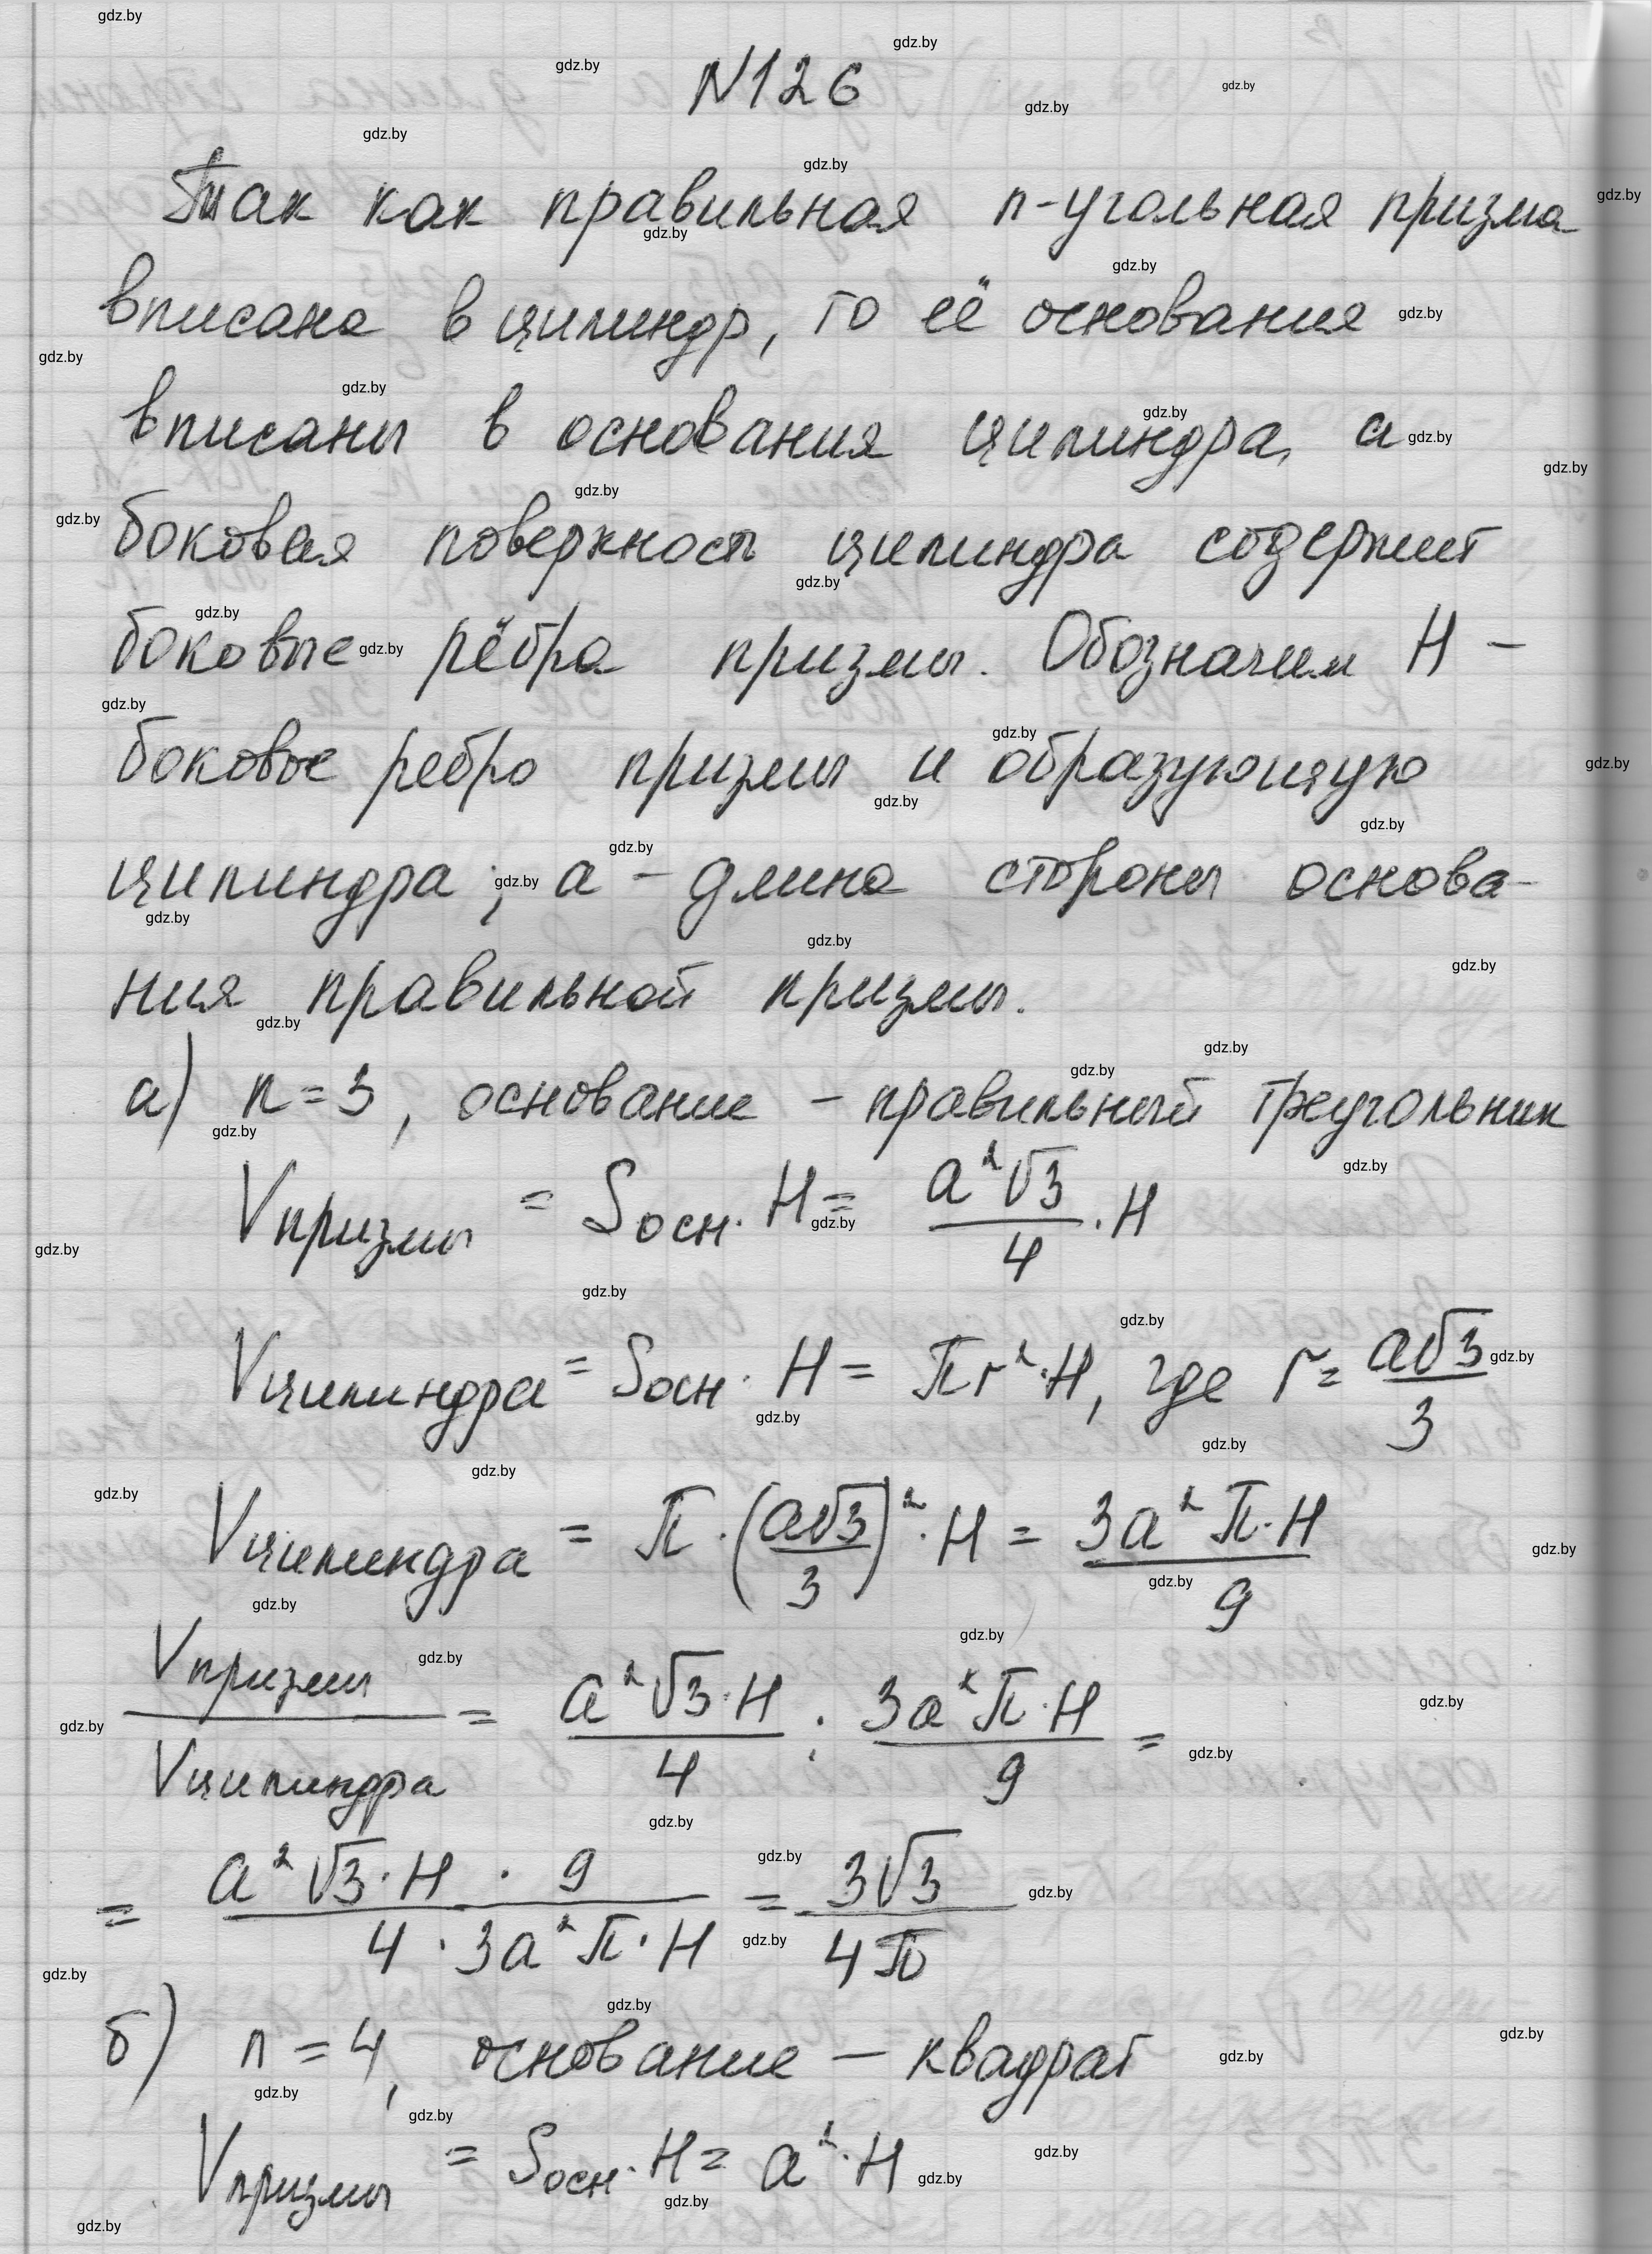 N126
Так как правильная n-угольная призма
вписана в цилиндр, то её основания
вписаны в основания цилиндра, а
боковая поверхность цилиндра содержит
боковые рёбра призмы. Обозначим H –
боковое ребро призмы и образующую
цилиндра; a – длина стороны основа-
ния правильной призмы.
а) n = 3, основание – правильный треугольник
Vпризмы = Sосн · H = a²√3/4 · H
Vцилиндра = Sосн · H = πr² · H, где r = a√3/3
Vцилиндра = π · (a√3/3)² · H = 3a²π·H/9
Vпризмы/Vцилиндра = a²√3·H/4 : 3a²π·H/9 =
= a²√3·H · 9/4 · 3a²π·H = 3√3/4π
б) n = 4, основание – квадрат
Vпризмы = Sосн · H = a² · H
gdz.by